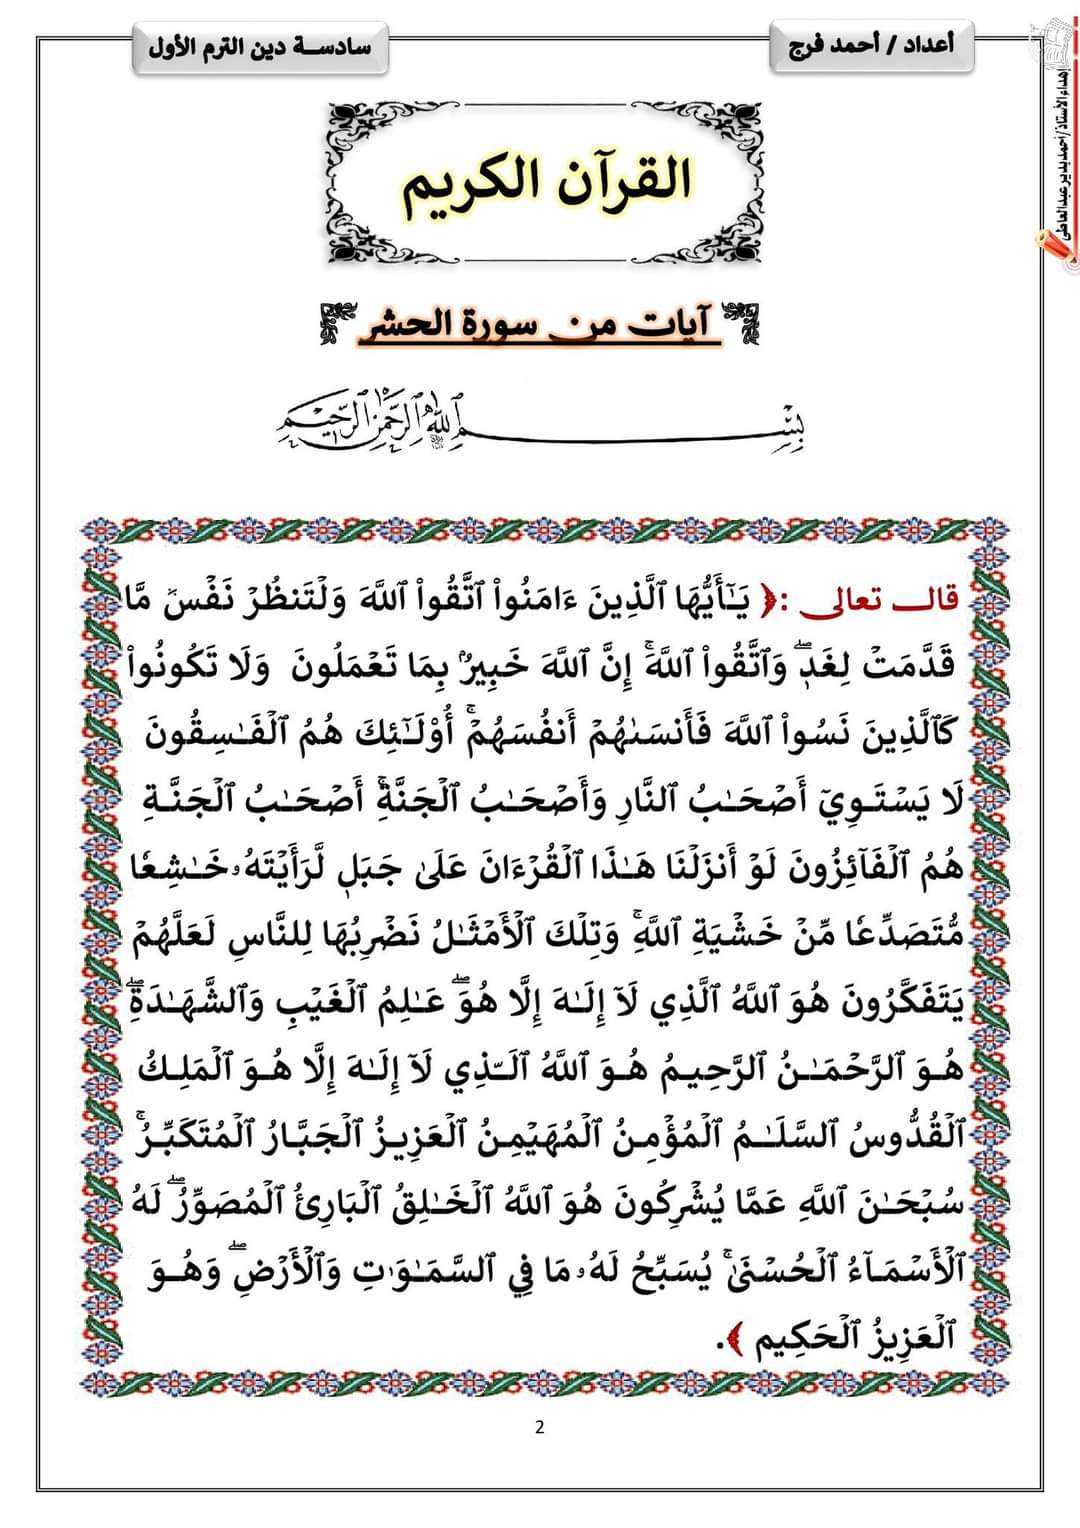 أعداد / أحمد فرج
سادسة دين الترم الأول
إهداء الأستاذ/ أحمد بدير عبدالعاطى
القرآن الكريم
آيات من سورة الحشر
بِسْمِ ٱللَّهِ ٱلرَّحْمَٰنِ ٱلرَّحِيمِ
قال تعالى :﴿ يَـٰٓأَيُّهَا ٱلَّذِينَ ءَامَنُوا۟ ٱتَّقُوا۟ ٱللَّهَ وَلۡتَنظُرۡ نَفۡسٞ مَّا
قَدَّمَتۡ لِغَدٖۖ وَٱتَّقُوا۟ ٱللَّهَۚ إِنَّ ٱللَّهَ خَبِيرُۢ بِمَا تَعۡمَلُونَ وَلَا تَكُونُوا۟
كَٱلَّذِينَ نَسُوا۟ ٱللَّهَ فَأَنسَىٰهُمۡ أَنفُسَهُمۡۚ أُو۟لَـٰٓئِكَ هُمُ ٱلۡفَـٰسِقُونَ
لَا يَسۡتَوِيٓ أَصۡحَـٰبُ ٱلنَّارِ وَأَصۡحَـٰبُ ٱلۡجَنَّةِۚ أَصۡحَـٰبُ ٱلۡجَنَّةِ
هُمُ ٱلۡفَآئِزُونَ لَوۡ أَنزَلۡنَا هَـٰذَا ٱلۡقُرۡءَانَ عَلَىٰ جَبَلٖ لَّرَأَيۡتَهُۥ خَـٰشِعٗا
مُّتَصَدِّعٗا مِّنۡ خَشۡيَةِ ٱللَّهِۚ وَتِلۡكَ ٱلۡأَمۡثَـٰلُ نَضۡرِبُهَا لِلنَّاسِ لَعَلَّهُمۡ
يَتَفَكَّرُونَ هُوَ ٱللَّهُ ٱلَّذِي لَآ إِلَـٰهَ إِلَّا هُوَۖ عَـٰلِمُ ٱلۡغَيۡبِ وَٱلشَّهَـٰدَةِۖ
هُوَ ٱلرَّحۡمَـٰنُ ٱلرَّحِيمُ هُوَ ٱللَّهُ ٱلَّذِي لَآ إِلَـٰهَ إِلَّا هُوَ ٱلۡمَلِكُ
ٱلۡقُدُّوسُ ٱلسَّلَـٰمُ ٱلۡمُؤۡمِنُ ٱلۡمُهَيۡمِنُ ٱلۡعَزِيزُ ٱلۡجَبَّارُ ٱلۡمُتَكَبِّرُۚ
سُبۡحَـٰنَ ٱللَّهِ عَمَّا يُشۡرِكُونَ هُوَ ٱللَّهُ ٱلۡخَـٰلِقُ ٱلۡبَارِئُ ٱلۡمُصَوِّرُۖ لَهُ
ٱلۡأَسۡمَآءُ ٱلۡحُسۡنَىٰۚ يُسَبِّحُ لَهُۥ مَا فِي ٱلسَّمَـٰوَٰتِ وَٱلۡأَرۡضِۖ وَهُوَ
ٱلۡعَزِيزُ ٱلۡحَكِيم ﴾.
2